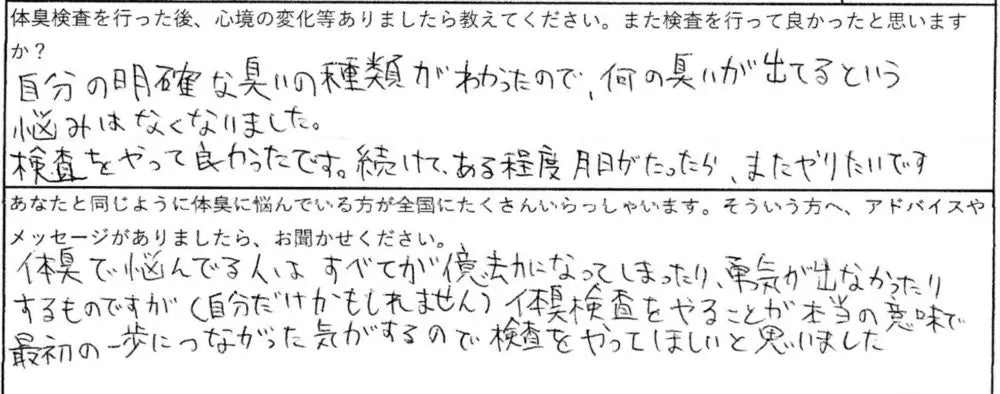 体臭検査を行った後、心境の変化等ありましたら教えてください。また検査を行って良かったと思います
か？
自分の明確な臭いの種類がわかったので、何の臭いが出てるという
悩みはなくなりました。
検査をやって良かったです。続けて、ある程度月日がたったら、またやりたいです
あなたと同じように体臭に悩んでいる方が全国にたくさんいらっしゃいます。そういう方へ、アドバイスや
メッセージがありましたら、お聞かせください。
体臭で悩んでる人は すべてが億劫になってしまったり、勇気が出なかったり
するものですが（自分だけかもしれません）体臭検査をやることが本当の意味で
最初の一歩につながった気がするので検査をやってほしいと思いました